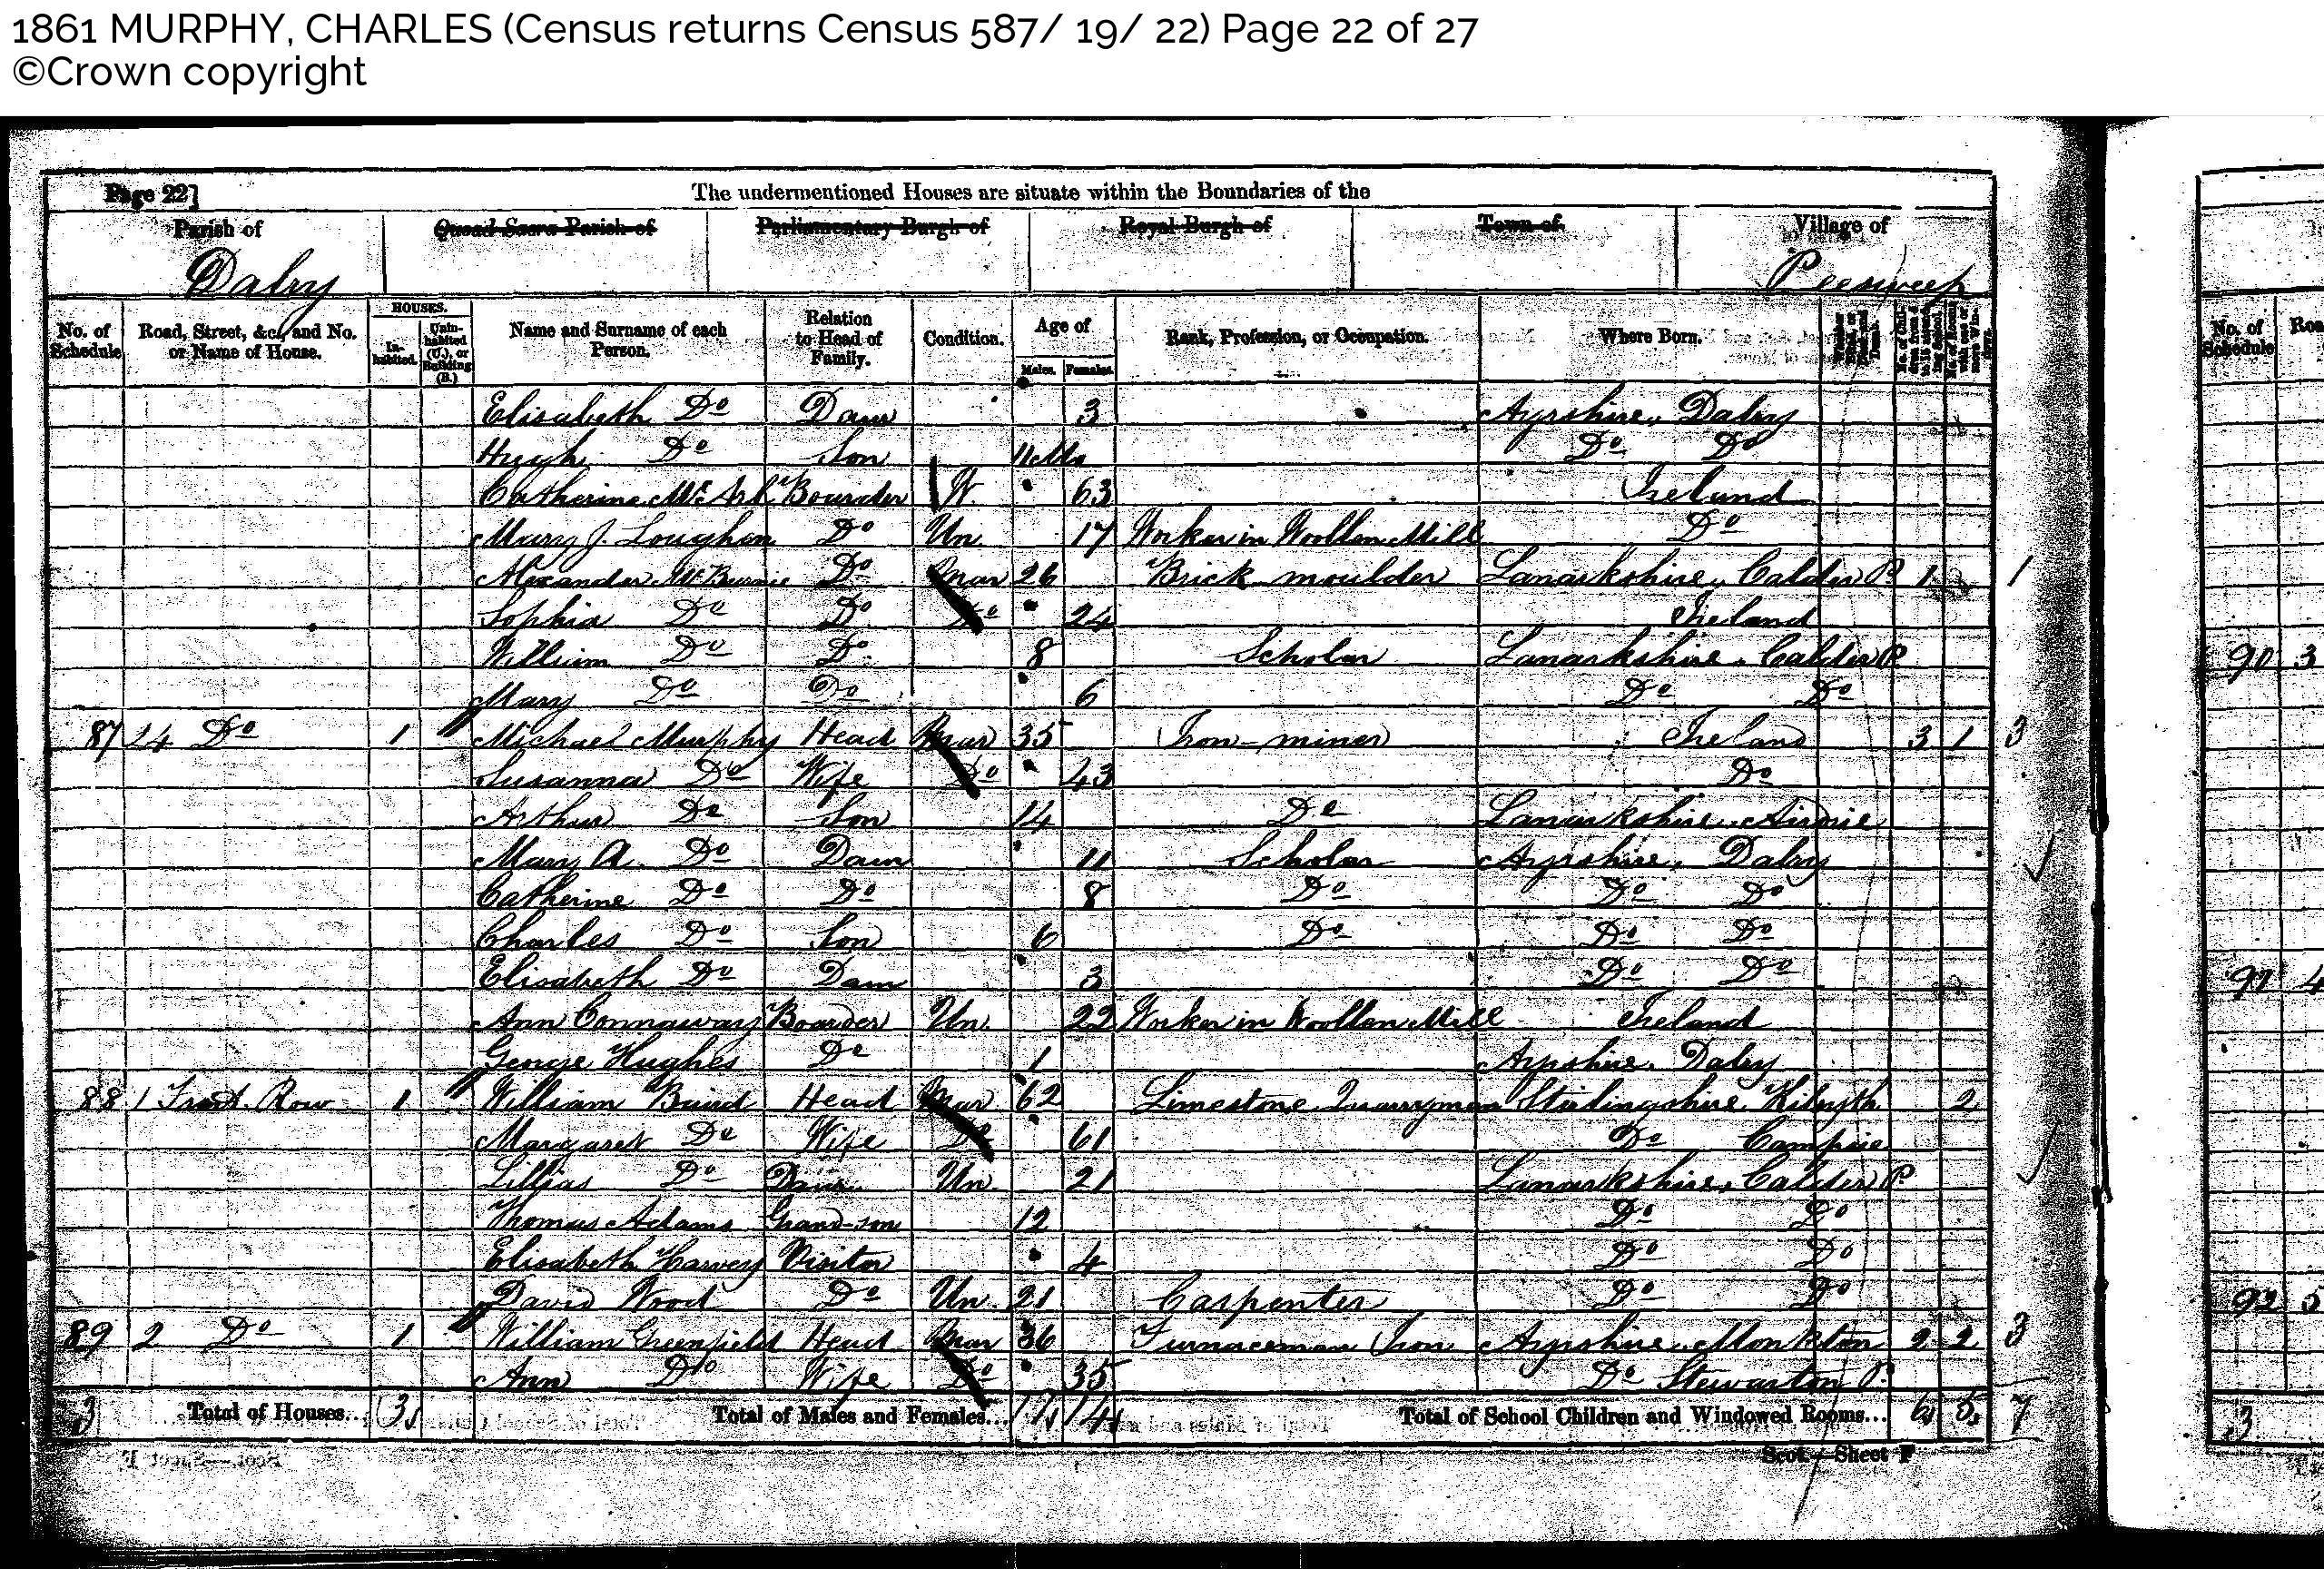 1861 MURPHY, CHARLES (Census returns Census 587/ 19/ 22) Page 22 of 27
©Crown copyright
Page 22]
The undermentioned Houses are situate within the Boundaries of the
Parish of Quoad Sacra Parish of Parliamentary Burgh of Royal Burgh of Town of Village of
Dalry Peesweep
No. of Schedule Road, Street, &c., and No. or Name of House. HOUSES. In-habited. Unin-habited (U.), or Building (B.) Name and Surname of each Person. Relation to Head of Family. Condition. Age of Males. Females. Rank, Profession, or Occupation. Where Born.
Elisabeth Do Daur 3 Ayrshire, Dalry
Hugh Do Son 11 Mo Do Do
Catherine Boarder W. 63 Ireland
Mary J. Loughan Do Un 17 Worker in Woollen Mill Do
Alexander McBurnie Do Mar 26 Brick moulder Lanarkshire, Calder P. 1 1
Sophia Do Do Do 24 Ireland
William Do Do 8 Scholar Lanarkshire, Calder P.
Mary Do Do 6 Do Do
87 24 Do 1 Michael Murphy Head Mar 35 Iron-miner Ireland 3 1 3
Susanna Do Wife Do 43 Do
Arthur Do Son 14 Do Lanarkshire, Airdrie
Mary A. Do Daur 11 Scholar Ayrshire, Dalry
Catherine Do Do 8 Do Do Do
Charles Do Son 6 Do Do Do
Elisabeth Do Daur 3 Do Do
Ann Connaway Boarder Un 22 Worker in Woollen Mill Ireland
George Hughes Do 1 Ayrshire, Dalry
88 1 Front Row 1 William Baird Head Mar 62 Limestone Quarryman Stirlingshire, Kilsyth 2
Margaret Do Wife Do 61 Do Campsie
Lillias Do Daur Un 21 Lanarkshire, Calder P.
Thomas Adams Grand-son 12 Do Do
Elisabeth Harvey Visitor 4 Do Do
David Wood Do Un 21 Carpenter Do Do
89 2 Do 1 William Greenfield Head Mar 36 Furnaceman Iron Ayrshire, Monkton 2 2 3
Ann Do Wife Do 35 Do Stewarton P.
3 Total of Houses... 3 Total of Males and Females... 11 14 Total of School Children and Windowed Rooms... 6 5 7
Scot.—Sheet F
No. of Schedule
90 3
91 4
92 5
3